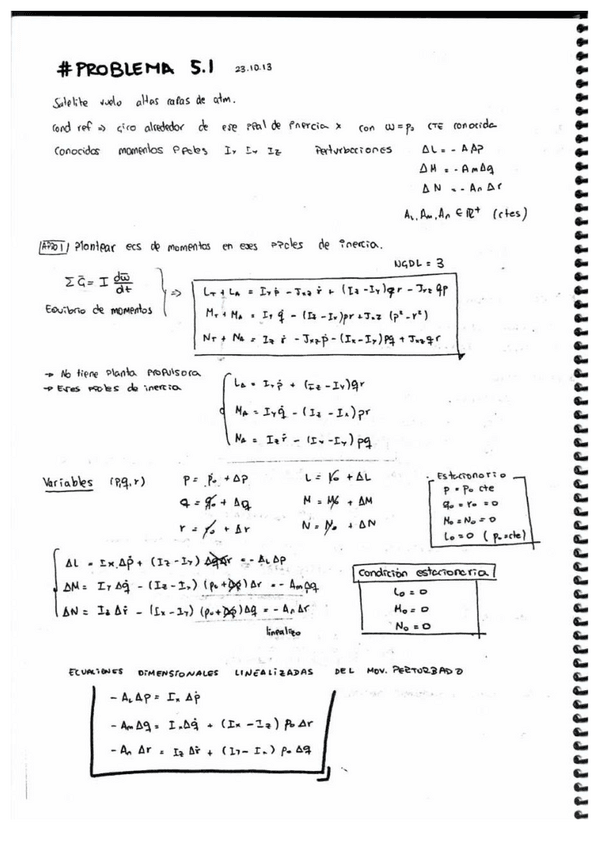 #PROBLEMA 5.1 23.10.13
Satelite vuelo altas capas de atm.
Cond ref => giro alrededor de eje ppal de inercia x con ω = p₀ CTE conocida
Conocidos momentos ppales Ix Iy Iz Perturbaciones ΔL = - A Δp
ΔM = - Am Δq
ΔN = - An Δr
AL, Am, An ∈ R⁺ (ctes)
Plantear ecs de momentos en ejes ppoles de inercia.
NGDL = 3
ΣG̅ = I dω̅/dt
Equilibrio de momentos
=>
LT + LA = Ix ṗ - Jxz ṙ + (Iz - Iy) qr - Jxz qp
MT + MA = Iy q̇ - (Iz - Ix) pr + Jxz (p² - r²)
NT + NA = Iz ṙ - Jxz ṗ - (Ix - Iy) pq + Jxz qr
→ No tiene planta propulsora
→ Ejes ppoles de inercia
LA = Ix ṗ + (Iz - Iy) qr
MA = Iy q̇ - (Iz - Ix) pr
NA = Iz ṙ - (Ix - Iy) pq
Variables (p,q,r) p = p₀ + Δp L = L₀ + ΔL
q = q₀ + Δq M = M₀ + ΔM
r = r₀ + Δr N = N₀ + ΔN
Estacionario
p = p₀ cte
q₀ = r₀ = 0
M₀ = N₀ = 0
L₀ = 0 (p₀ = cte)
ΔL = Ix Δṗ + (Iz - Iy) ΔqΔr = - AL Δp
ΔM = Iy Δq̇ - (Iz - Ix) (p₀ + Δp) Δr = - Am Δq
ΔN = Iz Δṙ - (Ix - Iy) (p₀ + Δp) Δq = - An Δr
linealizo
Condición estacionaria
L₀ = 0
M₀ = 0
N₀ = 0
ECUACIONES DIMENSIONALES LINEALIZADAS DEL MOV. PERTURBADO
- AL Δp = Ix Δṗ
- Am Δq = Iy Δq̇ + (Ix - Iz) p₀ Δr
- An Δr = Iz Δṙ + (Iy - Ix) p₀ Δq